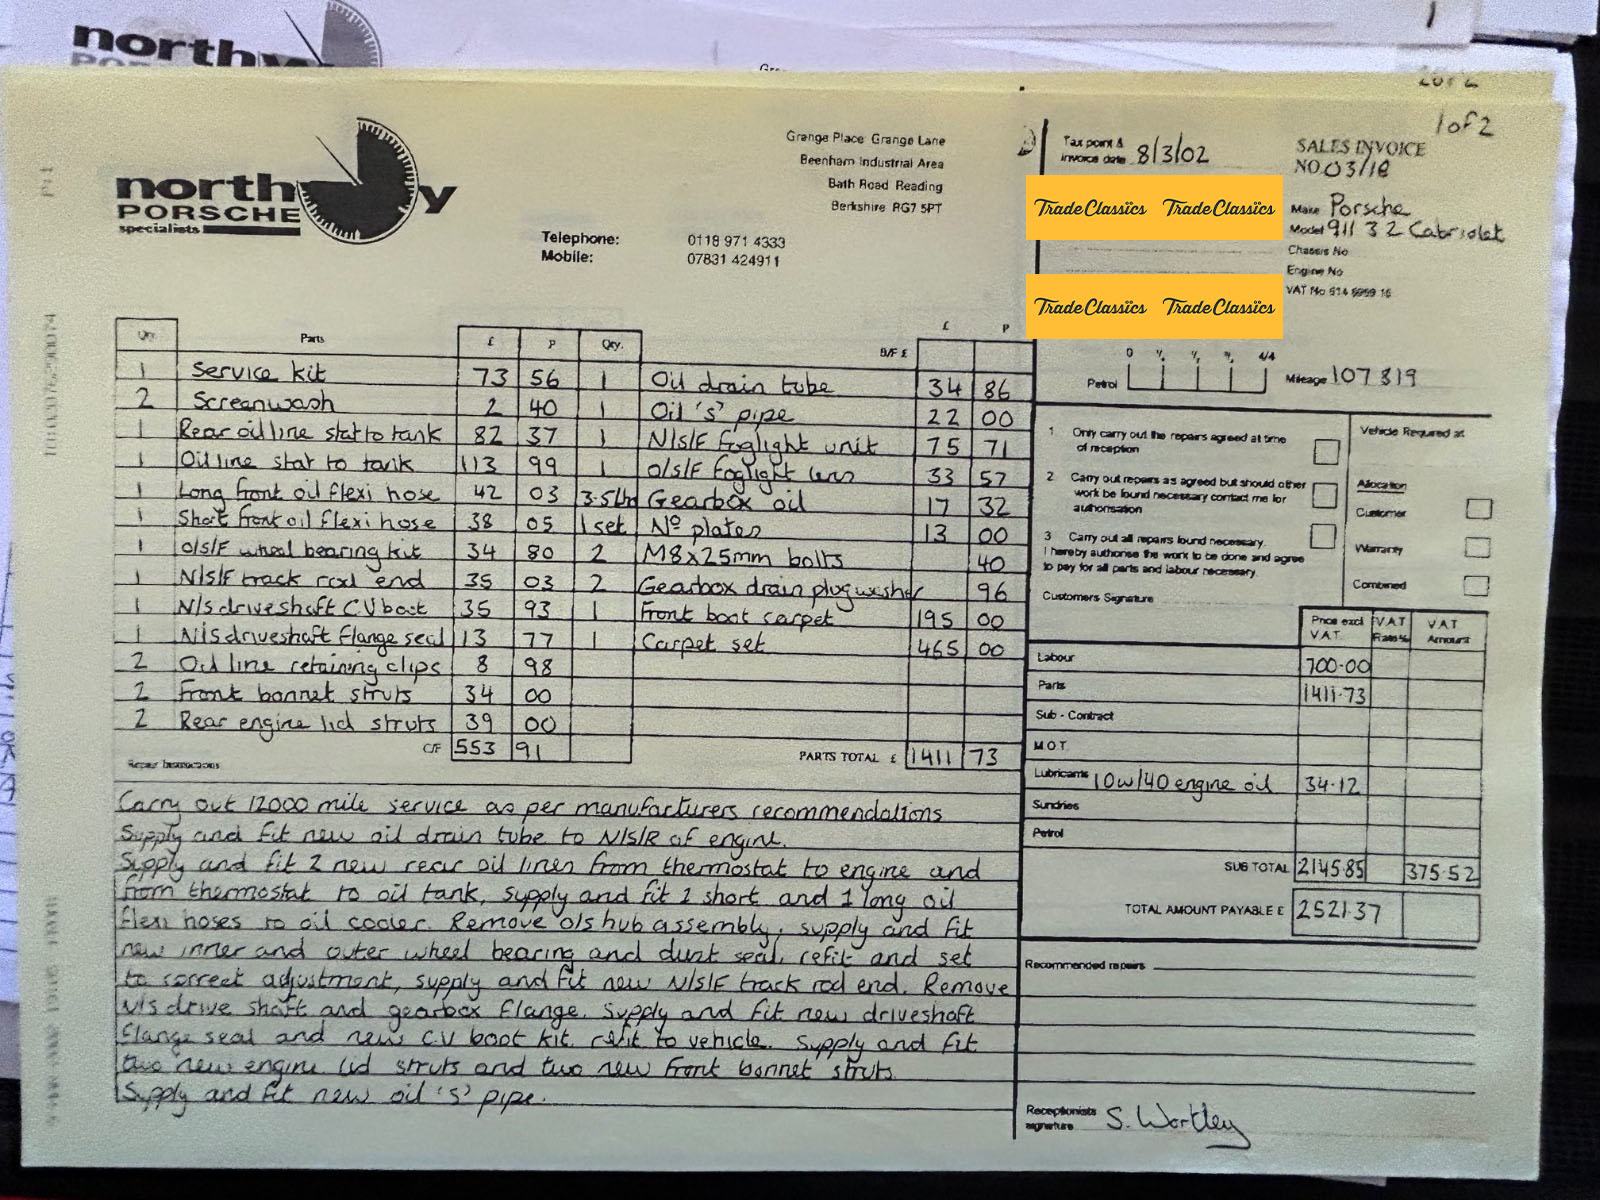 1
north
Gra
2 of 2
1 of 2
north y
PORSCHE
specialists
Grange Place Grange Lane
Beenham Industrial Area
Bath Road Reading
Berkshire RG7 5PT
Telephone: 0118 971 4333
Mobile: 07831 424911
Tax point &
invoice date 8/3/02
SALES INVOICE
NO. 03/18
TradeClassics TradeClassics
TradeClassics TradeClassics
Make Porsche
Model 911 3 2 Cabriolet
Chassis No
Engine No
VAT No
Petrol 0 4/4
Mileage 107 819
Qty. Parts £ P Qty. B/F £ £ P
1 Service kit 73 56 1 Oil drain tube 34 86
2 Screenwash 2 40 1 Oil 's' pipe 22 00
1 Rear oil line stat to tank 82 37 1 N/S/F Foglight unit 75 71
1 Oil line stat to tank 113 99 1 O/S/F Foglight lens 33 57
1 Long front oil flexi hose 42 03 3.5 ltrs Gearbox oil 17 32
1 Short front oil flexi hose 38 05 1 set No plates 13 00
1 O/S/F wheel bearing kit 34 80 2 M8x25mm bolts 40
1 N/S/F track rod end 35 03 2 Gearbox drain plug washer 96
1 N/s driveshaft C.V boot 35 93 1 Front boot carpet 195 00
1 N/s driveshaft flange seal 13 77 1 Carpet set 465 00
2 Oil line retaining clips 8 98
2 Front bonnet struts 34 00
2 Rear engine lid struts 39 00
C/F 553 91 PARTS TOTAL £ 1411 73
Repair Instructions
Carry out 12000 mile service as per manufacturers recommendations
Supply and fit new oil drain tube to N/S/R of engine.
Supply and fit 2 new rear oil lines from thermostat to engine and
from thermostat to oil tank, supply and fit 1 short and 1 long oil
flexi hoses to oil cooler. Remove o/s hub assembly, supply and fit
new inner and outer wheel bearing and dust seal, refit and set
to correct adjustment, supply and fit new N/S/F track rod end. Remove
N/s drive shaft and gearbox flange. Supply and fit new driveshaft
flange seal and new C.V boot kit. refit to vehicle. Supply and fit
two new engine lid struts and two new front bonnet struts.
Supply and fit new oil 's' pipe.
1 Only carry out the repairs agreed at time
of reception
2 Carry out repairs as agreed but should other
work be found necessary contact me for
authorisation
3 Carry out all repairs found necessary.
I hereby authorise the work to be done and agree
to pay for all parts and labour necessary.
Customers Signature
Vehicle Required at
Allocation
Customer
Warranty
Combined
Price excl VAT. V.A.T Rate% V.A.T Amount
Labour 700.00
Parts 1411.73
Sub - Contract
M.O.T.
Lubricants 10w/40 engine oil 34.12
Sundries
Petrol
SUB TOTAL 2145.85 375.52
TOTAL AMOUNT PAYABLE £ 2521.37
Recommended repairs
Receptionists
signature S. Wortley